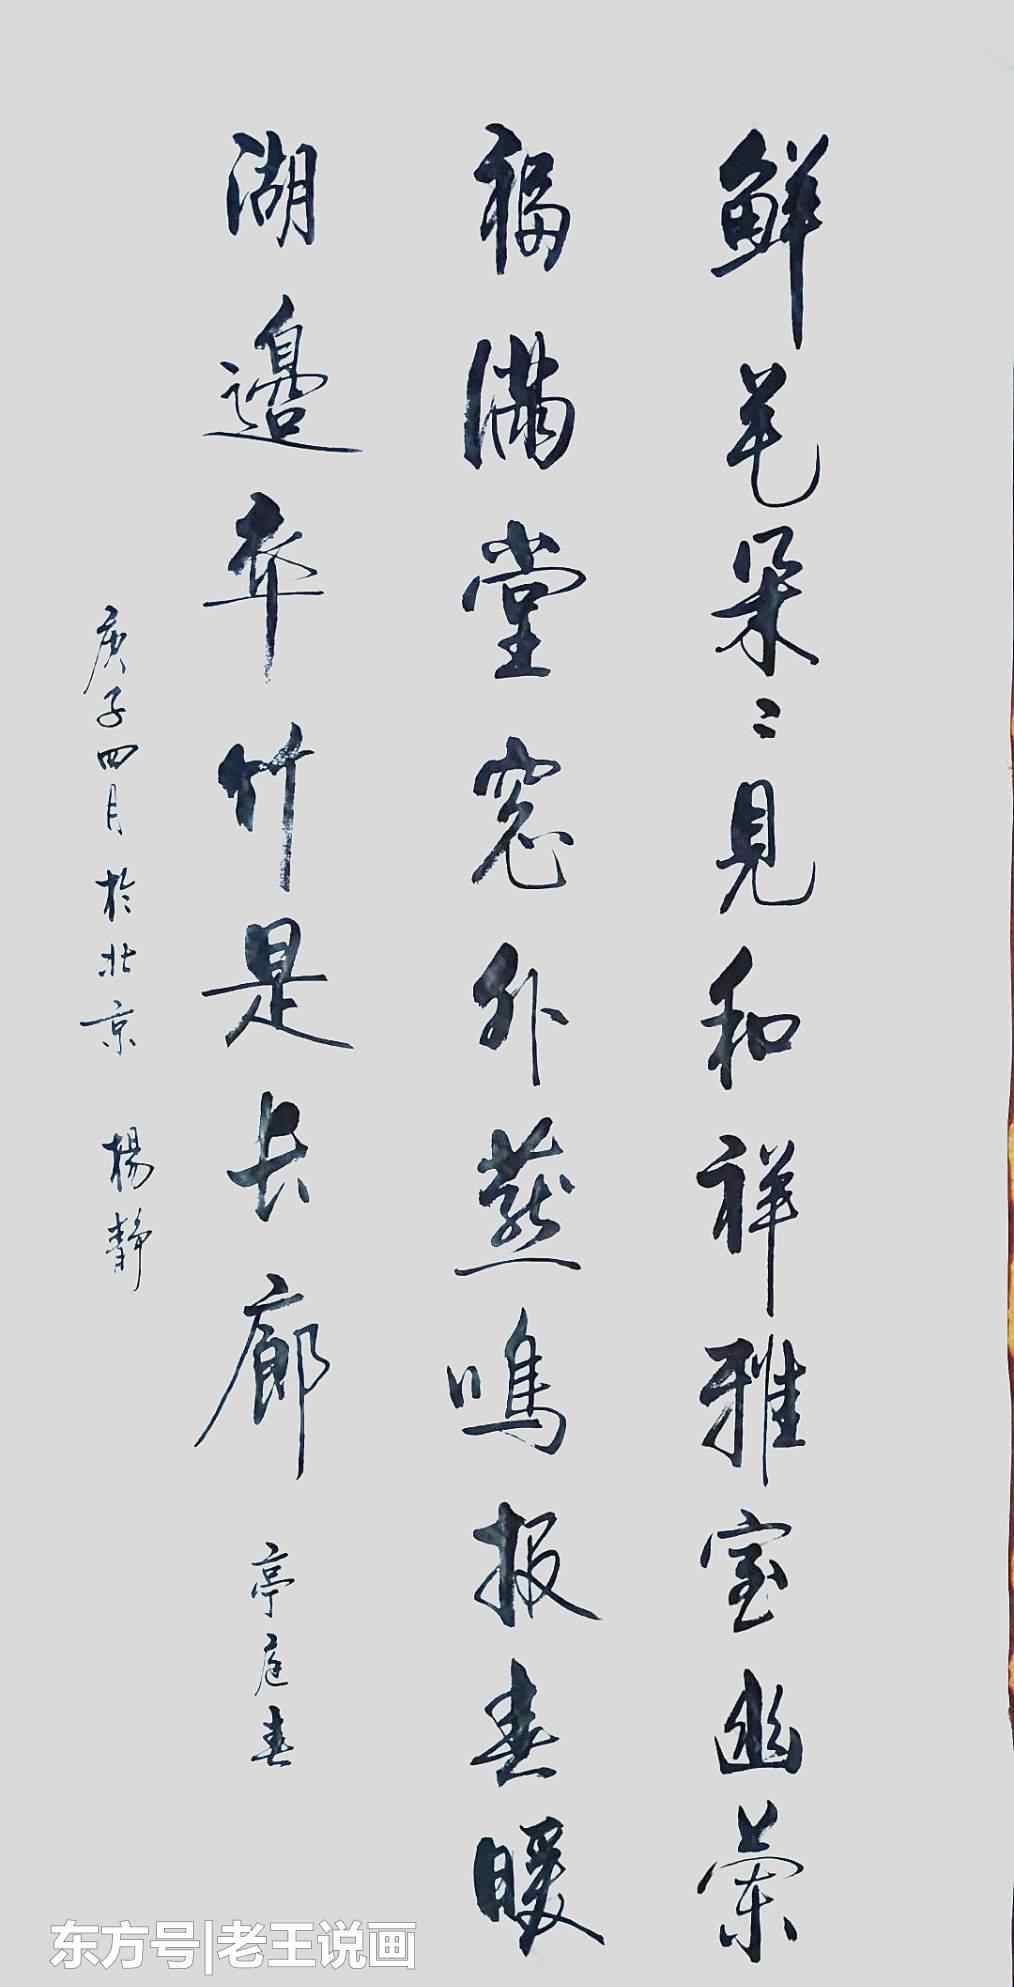 鲜花朵々見和祥雅室幽蘭
福滿堂窓外燕鳴报春暖
湖邊翠竹是长廊 亭庭春
庚子四月於北京 楊靜
东方号|老王说画